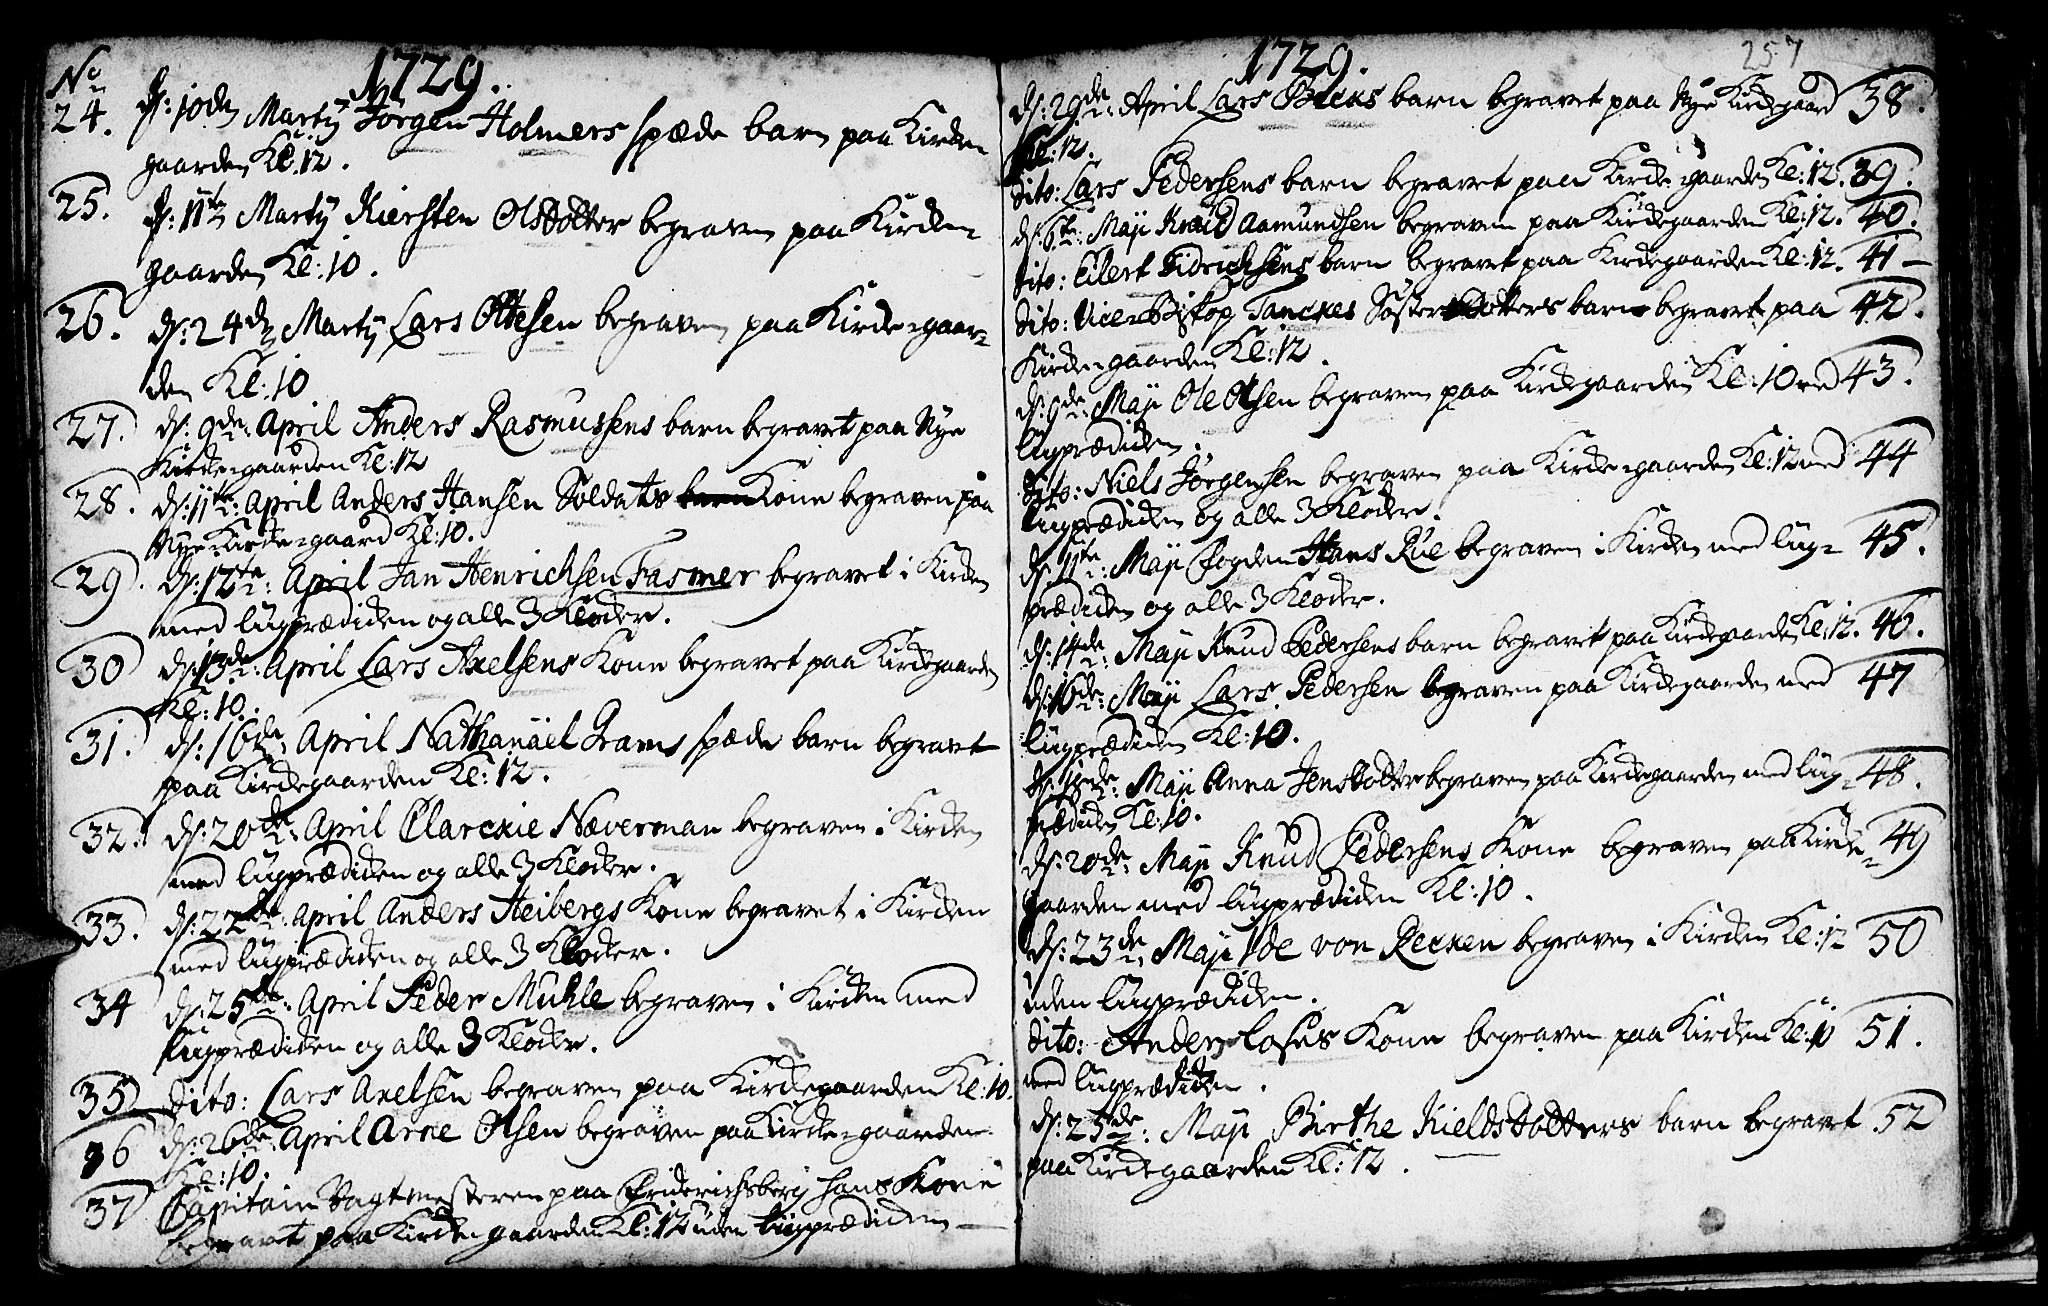 No
1729.
24. d: 10de Martÿ Jörgen Holmers spæde barn paa Kircke
gaarden Kl: 12.
25. d: 11te Martÿ Kiersten Olsdotter begraven paa Kircke-
gaarden Kl: 10.
26. d: 24de Martÿ Lars Ottesen begraven paa Kircke-gaar-
den Kl: 10
27. d: 9de: April Anders Rasmussens barn begravet paa Nye
Kircke-gaarden Kl: 12
28. d: 11te: April Anders Hansen Soldats barn Kone begraven paa
Nye Kircke-gaard Kl: 10.
29. d: 12te: April Jan Henrichsen Fasmer begravet i Kircken
med Liigprædicken og alle 3 Klocker.
30 d: 13de: April Lars Axelsens Kone begravet paa Kirckegaarden
Kl: 10.
31. d: 16de: April Nathanäel Grams spæde barn begravt
paa Kirckegaarden Kl: 12.
32. d: 20de: April Clarckie Næverman begraven i Kircken
med Liigprædicken og alle 3 Klocker.
33. d: 22de: April Anders Heibergs Kone begravet i Kircken
med Liigprædicken og alle 3 Klocker.
34 d: 25de: April Peder Muhle begraven i Kircken med
Liigprædicken og alle 3 Klocker.
35 dito: Lars Axelsen begraven paa Kirckegaarden Kl: 10.
36 d: 26de: April Arne Olsen begraven paa Kircke-gaarden
Kl: 10.
37 Capitain Vagtmesteren paa Friderichsberg hans Kone
begravt paa Kircke-gaarden Kl: 12 uden Liigprædicken
1729.
257
d: 29de: April Lars Becks barn begravet paa Nye Kirckegaard 38.
Kl: 12.
dito: Lars Pedersens barn begravet paa Kircke-gaarden Kl: 12. 39.
d: 6te: Maji Knud Aamundsen begraven paa Kirckegaarden Kl: 12. 40.
dito: Eilert Didrichsens barn begravet paa Kirckegaarden Kl: 12. 41
dito: Vice-Biskop Tanckes Söster Dotters barn begravet paa 42.
Kircke-gaarden Kl: 12.
d: 9de: Maji Ole Olsen begraven paa Kirckegaarden Kl: 10 med 43.
Liigprædicken.
dito: Niels Jörgensen begraven paa Kircke-gaarden Kl: 12 med 44
Liigprædicken og alle 3 Klocker.
d: 11te: Maji Fogden Hans Rue begraven i Kircken med Liig- 45.
prædicken og alle 3 Klocker.
d: 14de: Maji Knud Pedersens barn begravet paa Kirckegaarden Kl: 12. 46.
d: 16de: Maji Lars Pedersen begraven paa Kirckegaarden med 47
Liigprædicken Kl: 10.
d: 18de: Maji Anna Jensdotter begraven paa Kirckegaarden med Liig- 48.
prædicken Kl: 10.
d: 20de: Maji Knud Pedersens Kone begraven paa Kircke- 49
gaarden med Liigprædicken Kl: 10.
d: 23de: Maji Ide von Recken begraven i Kircken Kl: 12 50
uden Liigprædicken.
dito: Anders Kone begraven paa Kircken Kl: 10 51.
med Liigprædicken.
d: 25de: Maji Birthe Kieldsdotters barn begravet 52
paa Kirckegaarden Kl: 12.